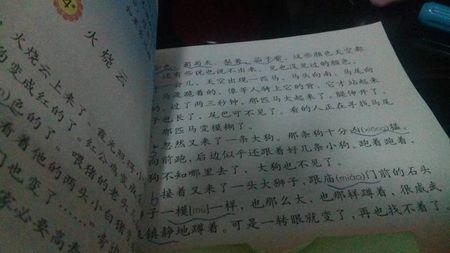 4.
火烧云
火烧云上来了。霞光照得小
色变成红的了，红公鸡变成
色的了。喂猪的老头儿
看着他的两头小白猪
们也变了……"旁边
安必要高寿
葡萄灰、梨黄、茄子紫，这些颜色天空都
还有些说也说不出来、见也没见过的颜色。
一会儿，天空出现一匹马，马头向南，马尾向
马是跪着的，像等人骑上它的背，它才站起来
的。过了两三秒钟，那匹马大起来了，腿伸开了，
子也长了，尾巴可不见了。看的人正在寻找马尾
那匹马变模糊了。
忽然又来了一条大狗。那条狗十分凶(xiōng)猛，
向前跑，后边似乎还跟着好几条小狗。跑着跑着，
狗不知哪里去了，大狗也不见了。
接着又来了一头大狮子，跟庙(miào)门前的石头
子一模(mú)一样，也那么大，也那样蹲着，很威武
镇静地蹲着。可是一转眼就变了，再也找不着了。